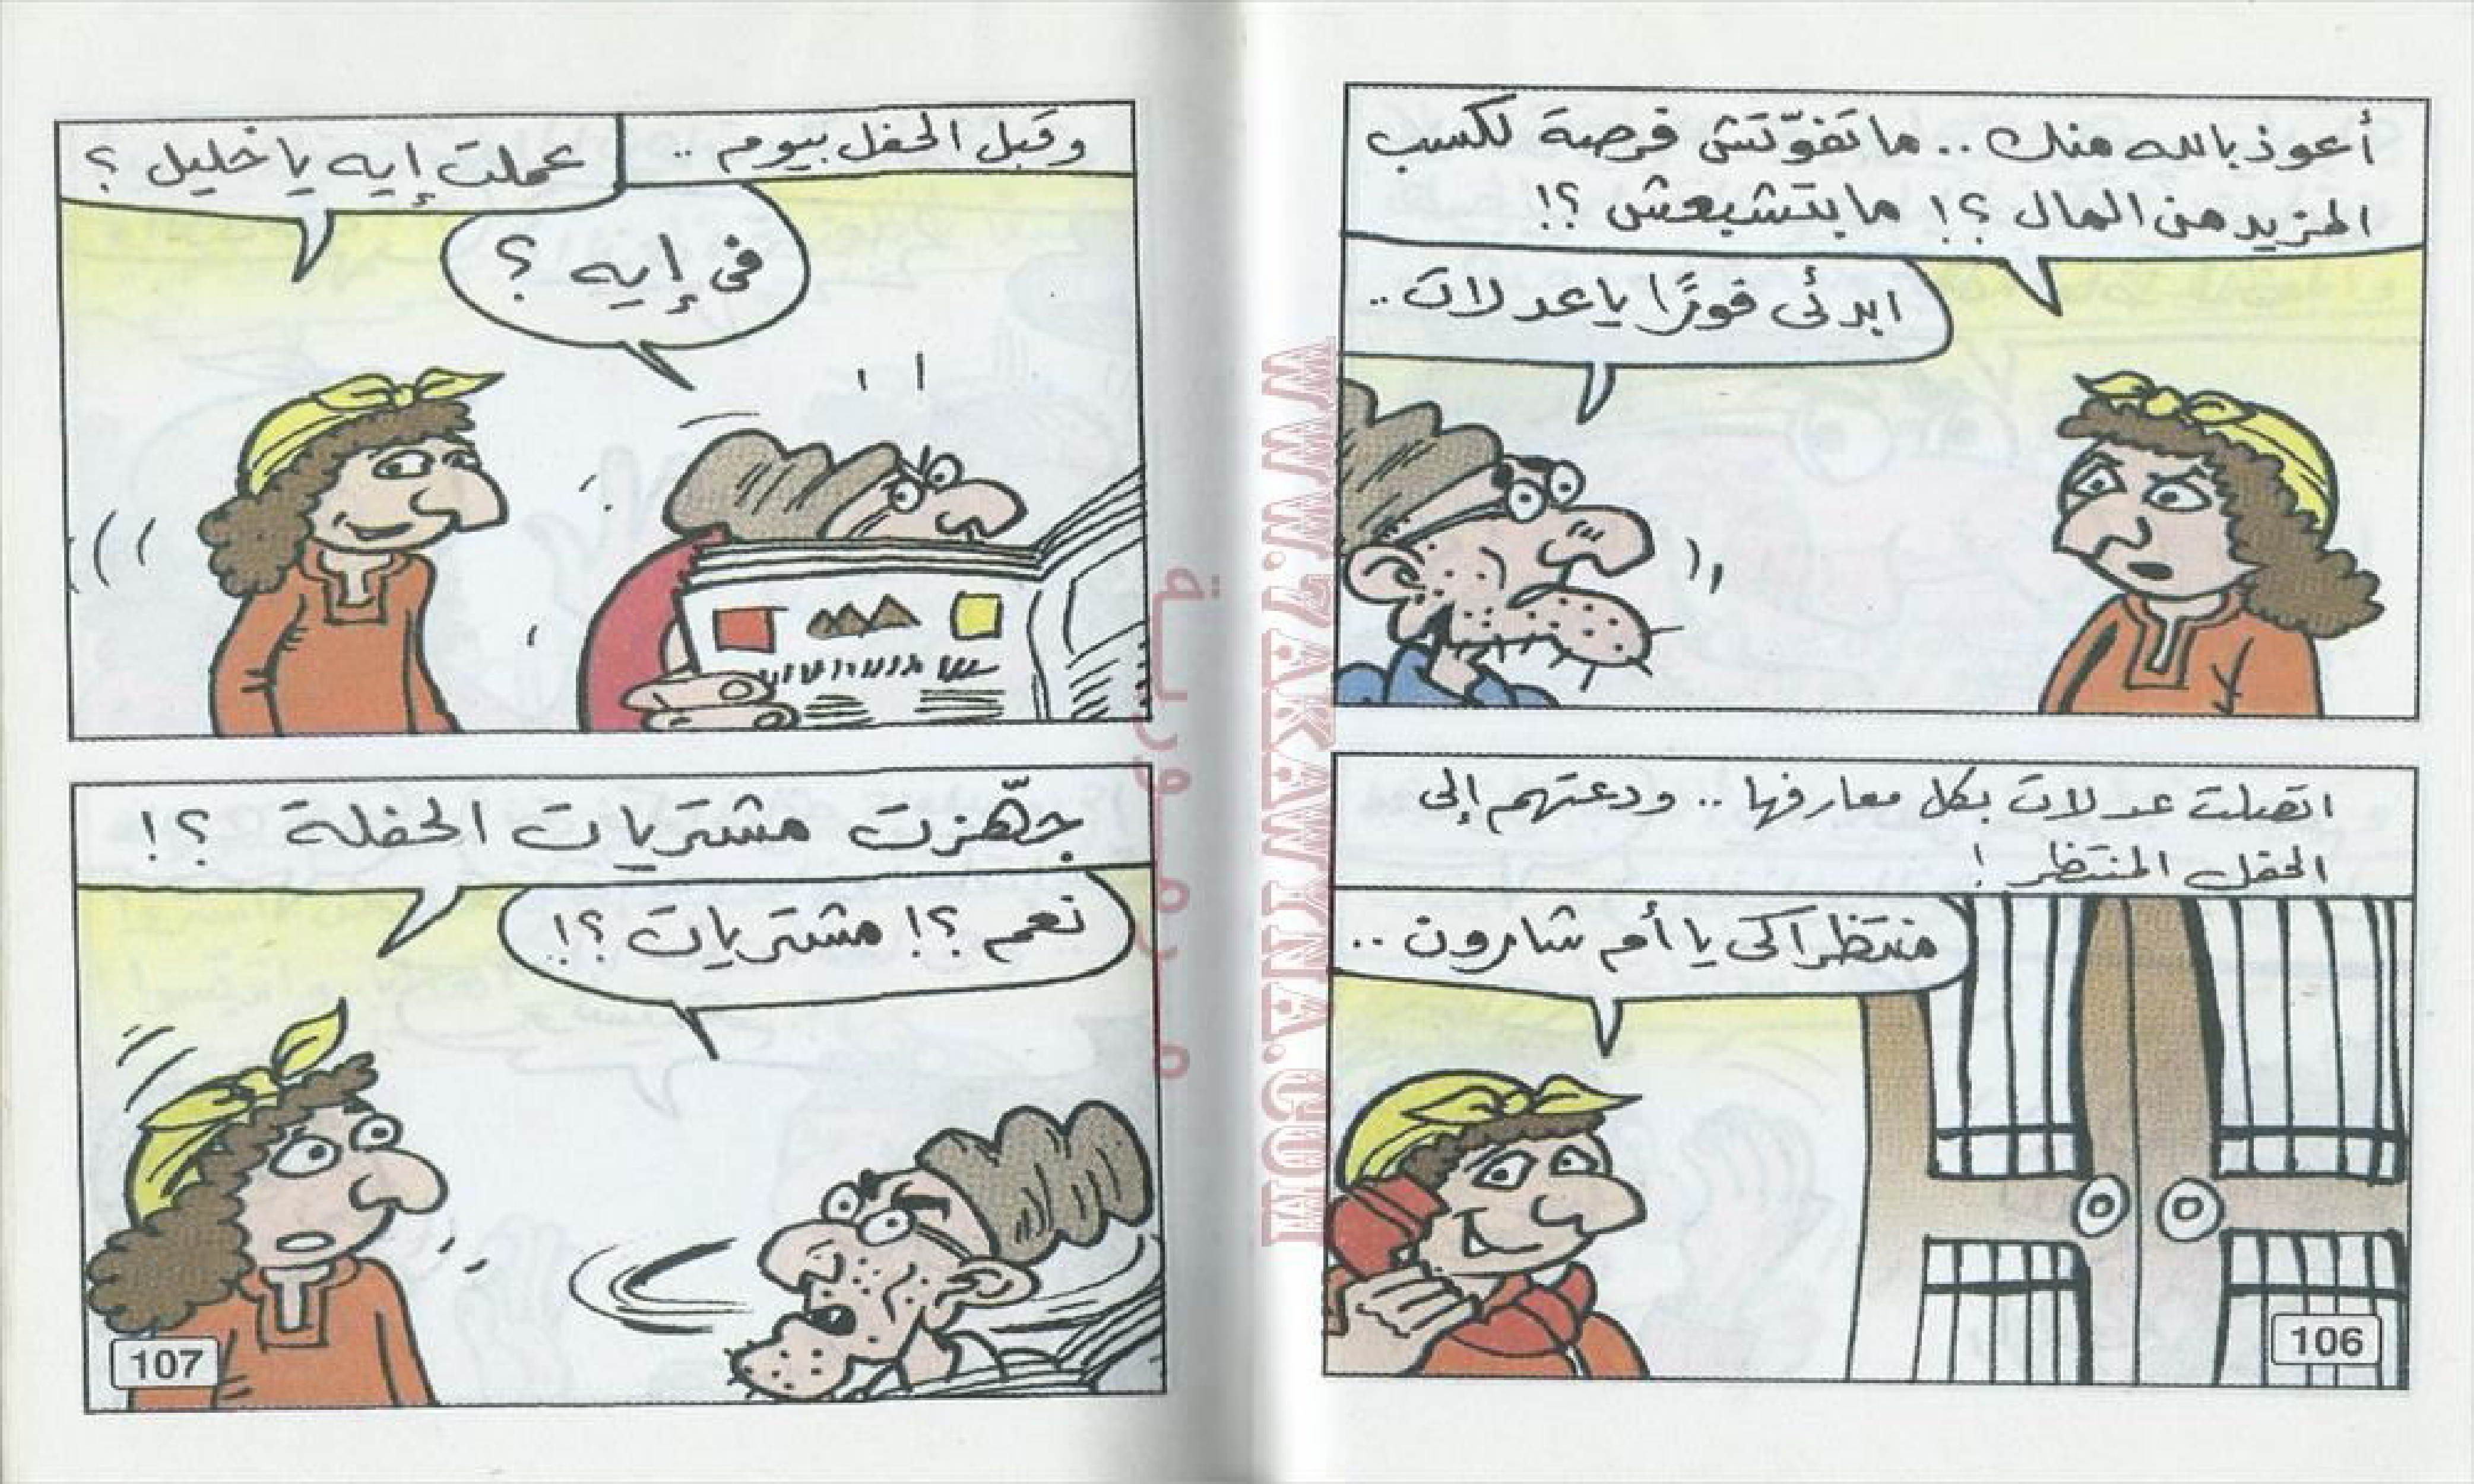 أعوذ بالله منك .. ما تفوّتش فرصة لكسب
المزيد من المال ؟! ما بتشبعش ؟!
ابدئى فورًا يا عدلات ..
اتصلت عدلات بكل معارفها .. ودعتهم إلى
الحفل المنتظر !
منتظراكى يا أم شارون ..
106
وقبل الحفل بيوم ..
عملت إيه يا خليل ؟
فى إيه ؟
جهّزت مشتريات الحفلة ؟!
نعم ؟! مشتريات ؟!
107
WWW.ZAKAWKNA.COM